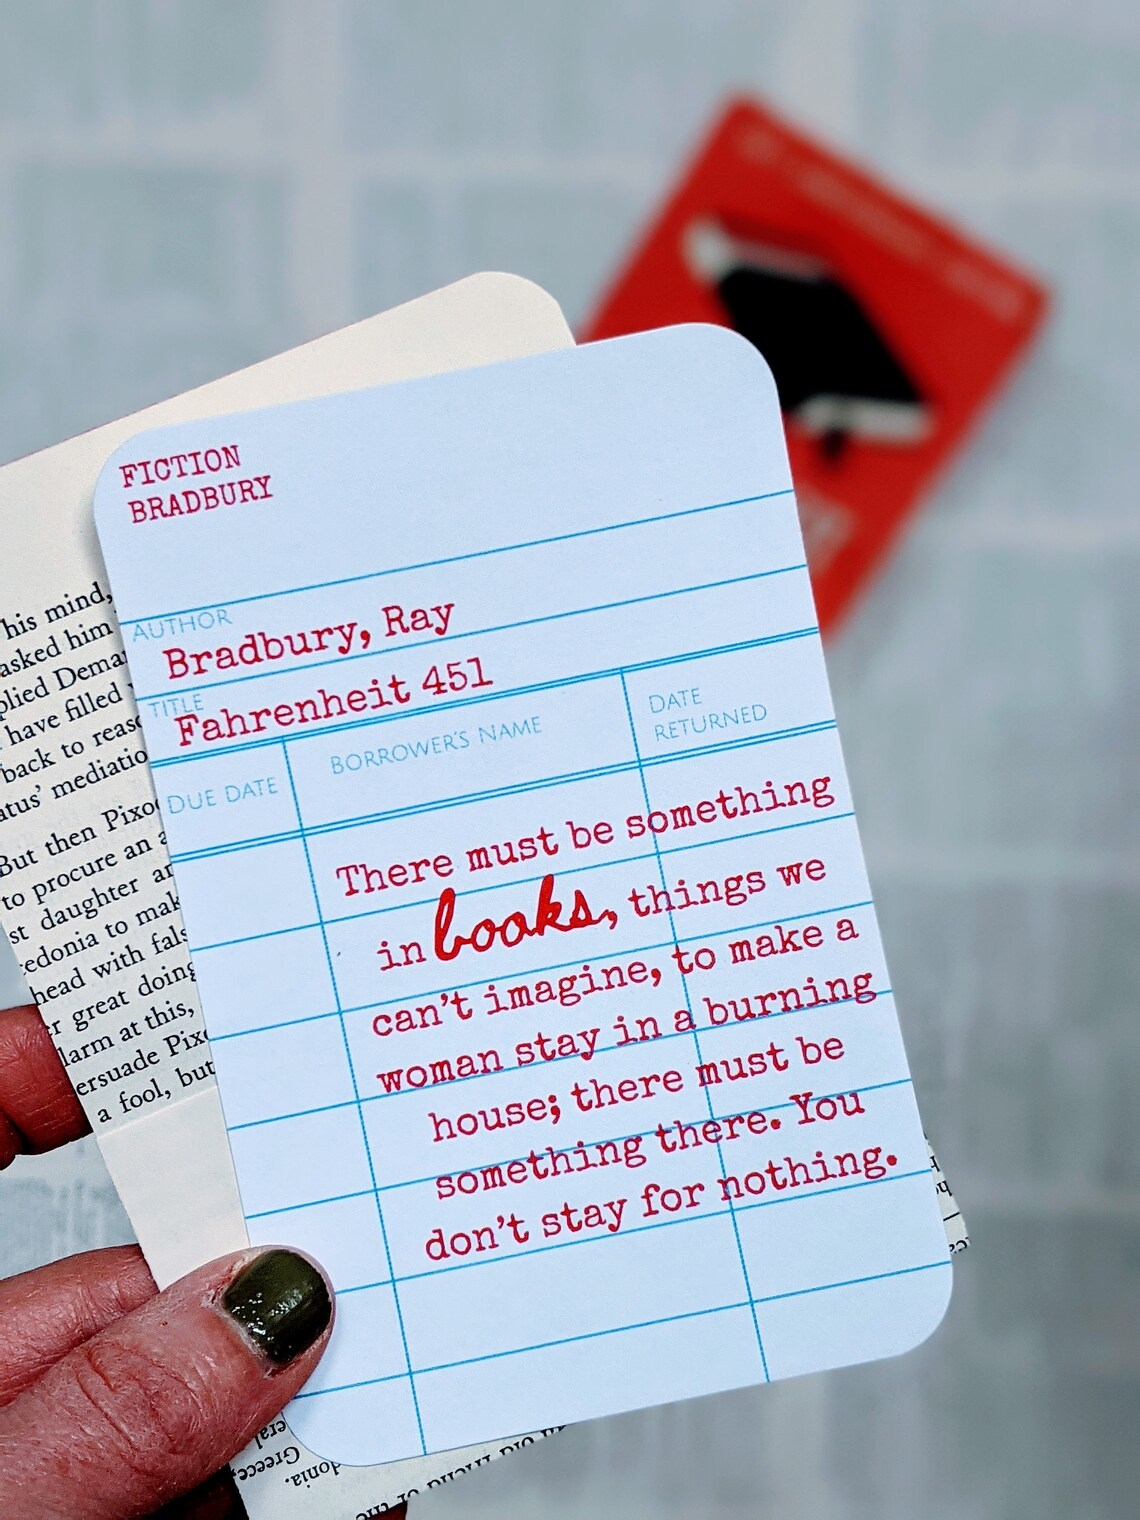 FICTION
BRADBURY
AUTHOR
Bradbury, Ray
TITLE
Fahrenheit 451
DUE DATE
BORROWER'S NAME
DATE
RETURNED
There must be something
in books, things we
can't imagine, to make a
woman stay in a burning
house; there must be
something there. You
don't stay for nothing.
his mind,
asked him
plied
have filled
back to
mediatio
But then
to procure an
st daughter
edonia to
head with
great doing
larm at this,
ersuade
a fool, but
Greece,
donia.